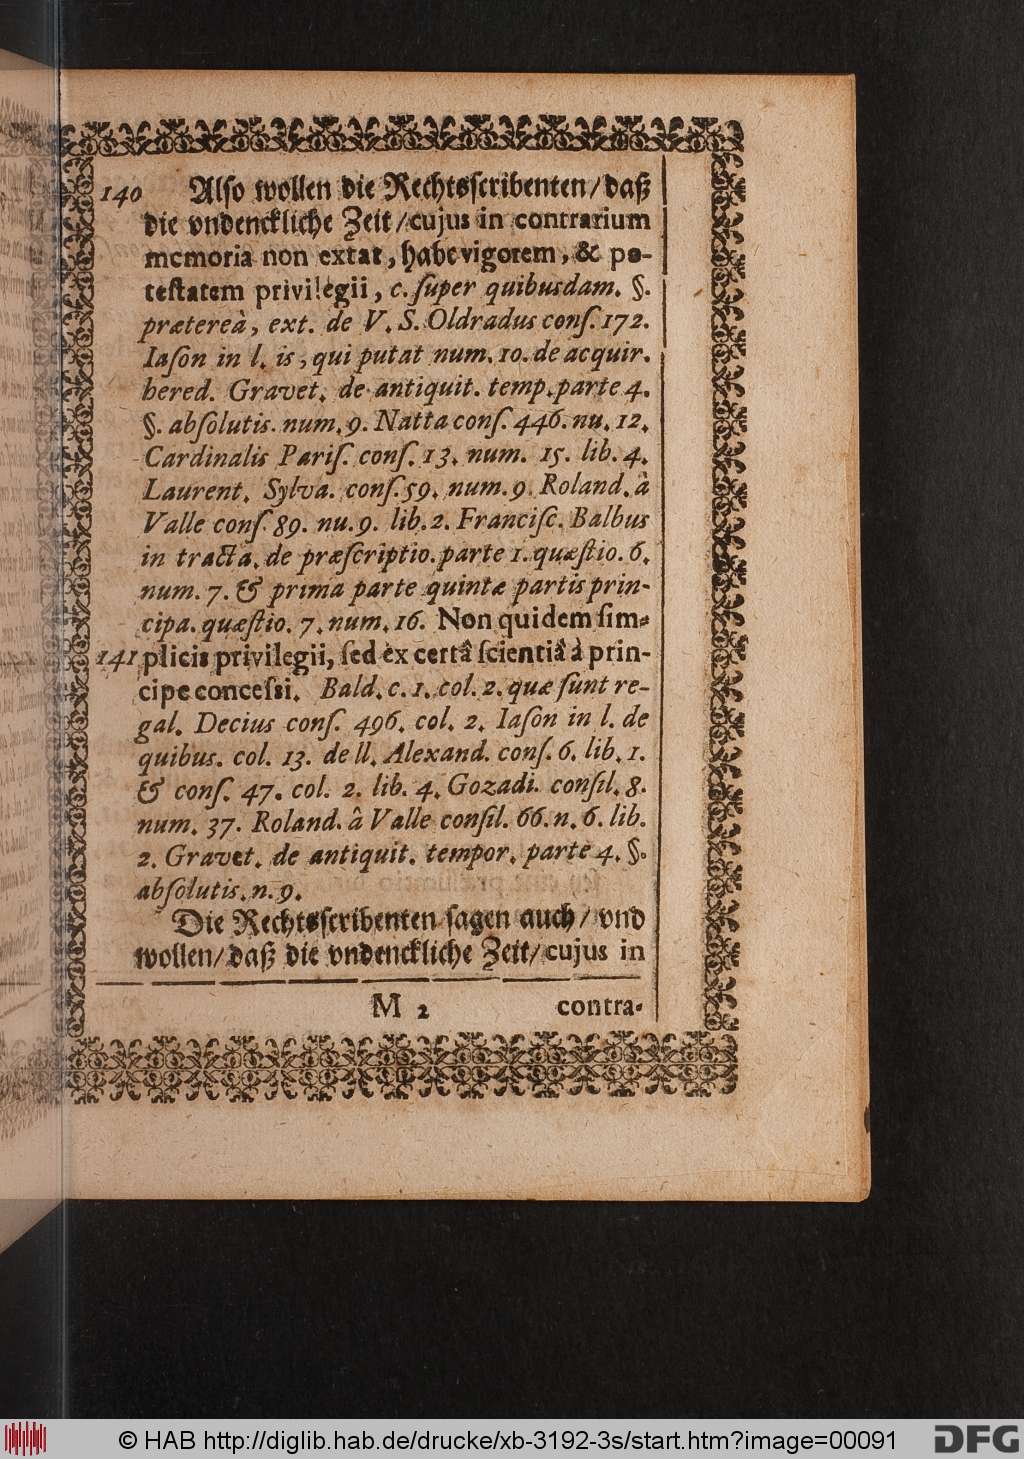 140 Also wollen die Rechtsscribenten/daß
die vndenckliche Zeit/cujus in contrarium
memoria non extat, habe vigorem, & po-
testatem privilegii, c. ſuper quibusdam. §.
prætereà, ext. de V. S. Oldradus conſ. 172.
Iaſon in l. is, qui putat num. 10. de acquir.
hered. Gravet. de antiquit. temp. parte 4.
§. abſolutis. num. 9. Natta conſ. 446. nu. 12.
Cardinalis Pariſ. conſ. 13. num. 15. lib. 4.
Laurent. Sylva. conſ. 59. num. 9. Roland. â
Valle conſ. 89. nu. 9. lib. 2. Franciſc. Balbus
in tracta. de præſcriptio. parte 1. quæſtio. 6.
num. 7. & prima parte quintæ partis prin-
cipa. quæſtio. 7. num. 16. Non quidem ſim-
141 plicis privilegii, ſed ex certâ ſcientiâ à prin-
cipe conceſsi. Bald. c. 1. col. 2. quæ ſunt re-
gal. Decius conſ. 496. col. 2. Iaſon in l. de
quibus. col. 13. de ll. Alexand. conſ. 6. lib. 1.
& conſ. 47. col. 2. lib. 4. Gozadi. conſil. 8.
num. 37. Roland. â Valle conſil. 66. n. 6. lib.
2. Gravet. de antiquit. tempor. parte 4. §.
abſolutis. n. 9.
Die Rechtsscribenten sagen auch/ vnd
wollen/daß die vndenckliche Zeit/cujus in
M 2 contra-
© HAB http://diglib.hab.de/drucke/xb-3192-3s/start.htm?image=00091 DFG